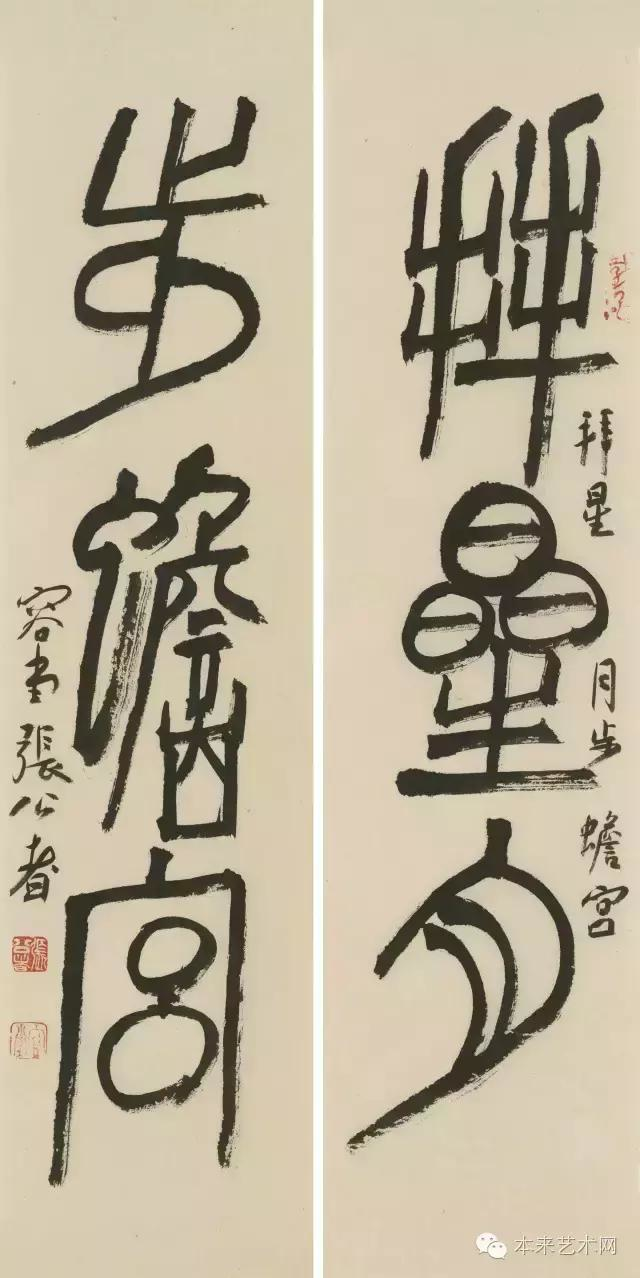 拜星月
拜星月步蟾宫
步蟾宫
容堂張公者
本来艺术网